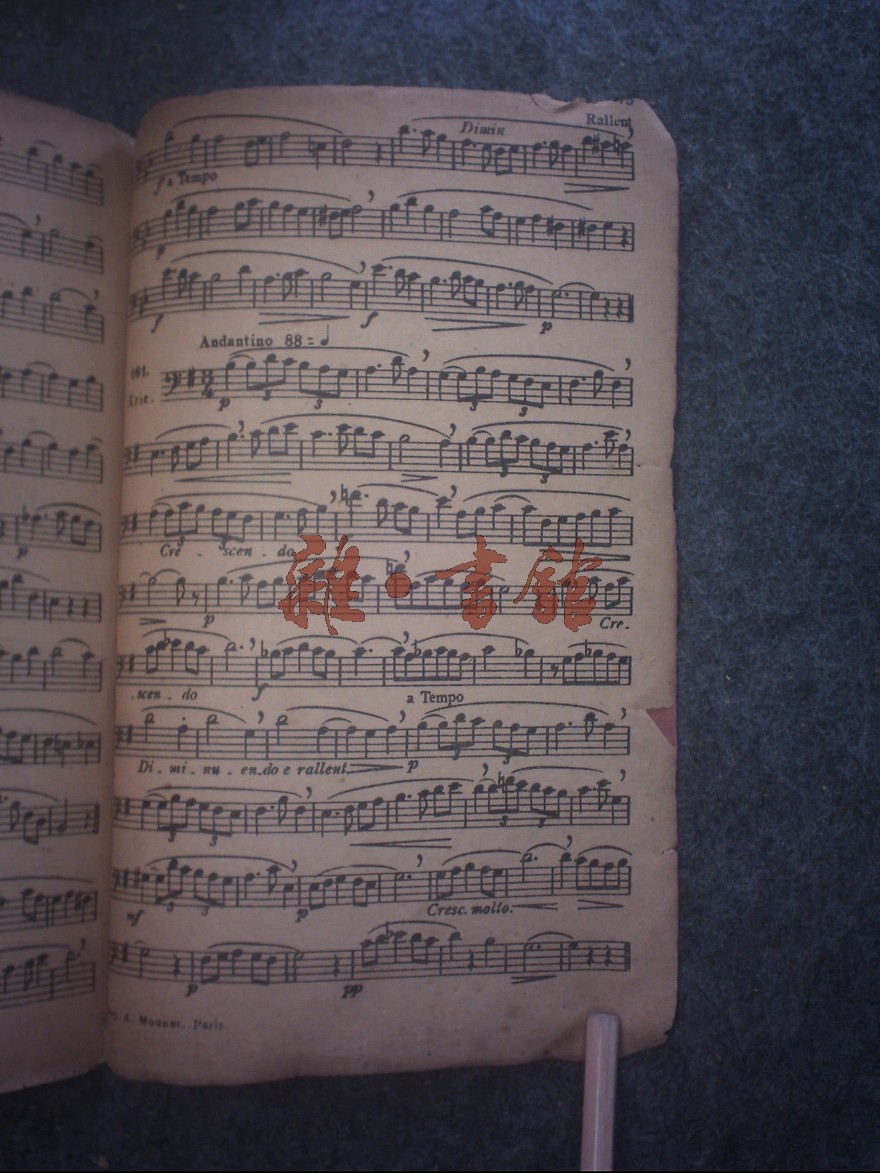 Dimin
Rallent
f a Tempo
p
f f p
Andantino 88 =
161.
3
4
p 3 3 3 3
3 3
Cre - scen - do
雜·書館
p Cre-
scen - do f a Tempo
Di - mi - nu - en-do e rallent. p 3 3
3 3 3 3
mf 3 3 p Cresc. molto.
p pp
A. Mounot. Paris